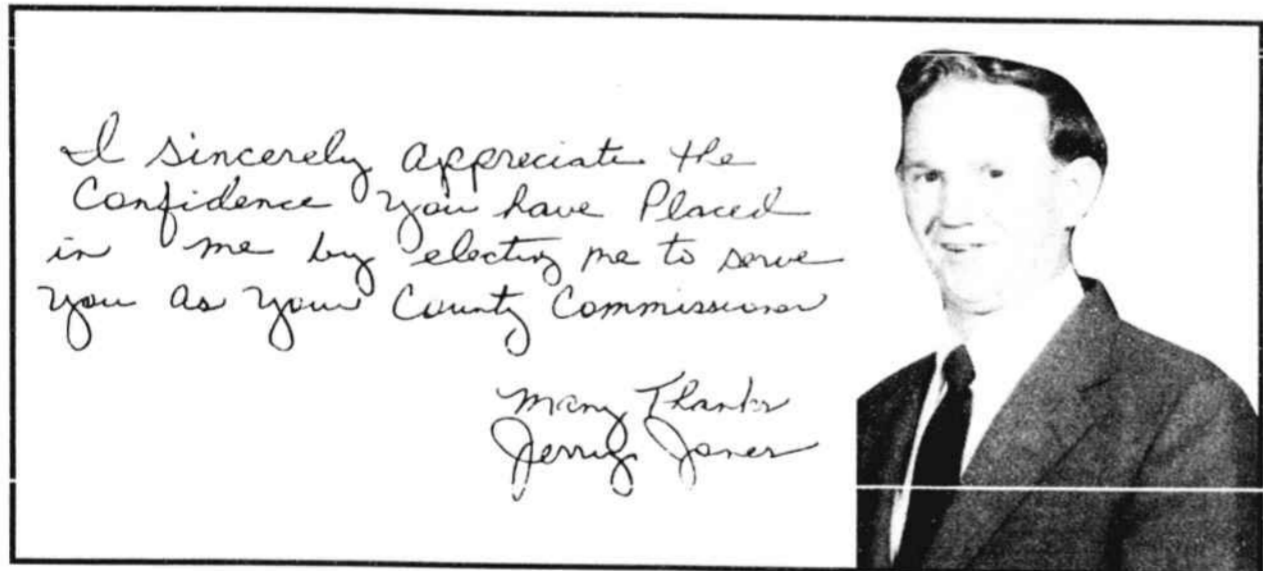 I sincerely appreciate the
Confidence you have Placed
in me by electing me to serve
you as your County Commissioner
Many Thanks
Jerry Jones